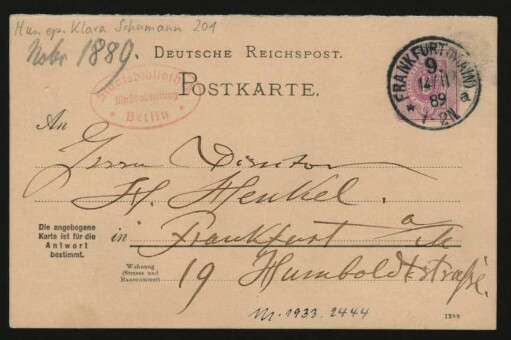 Mus. ep. Klara Schumann 201
Novbr 1889.
DEUTSCHE REICHSPOST.
POSTKARTE.
FRANKFURT (MAIN)
9.
14/11
89
1-2N
* a
Staatsbibliothek
Musikabteilung
* Berlin *
An
Herrn Director
H. Henkel.
Die angebogene
Karte ist für die
Antwort
bestimmt.
in Frankfurt a/M
Wohnung
(Strasse und
Hausnummer)
19 Humboldtstraße.
M. 1933. 2444
1289